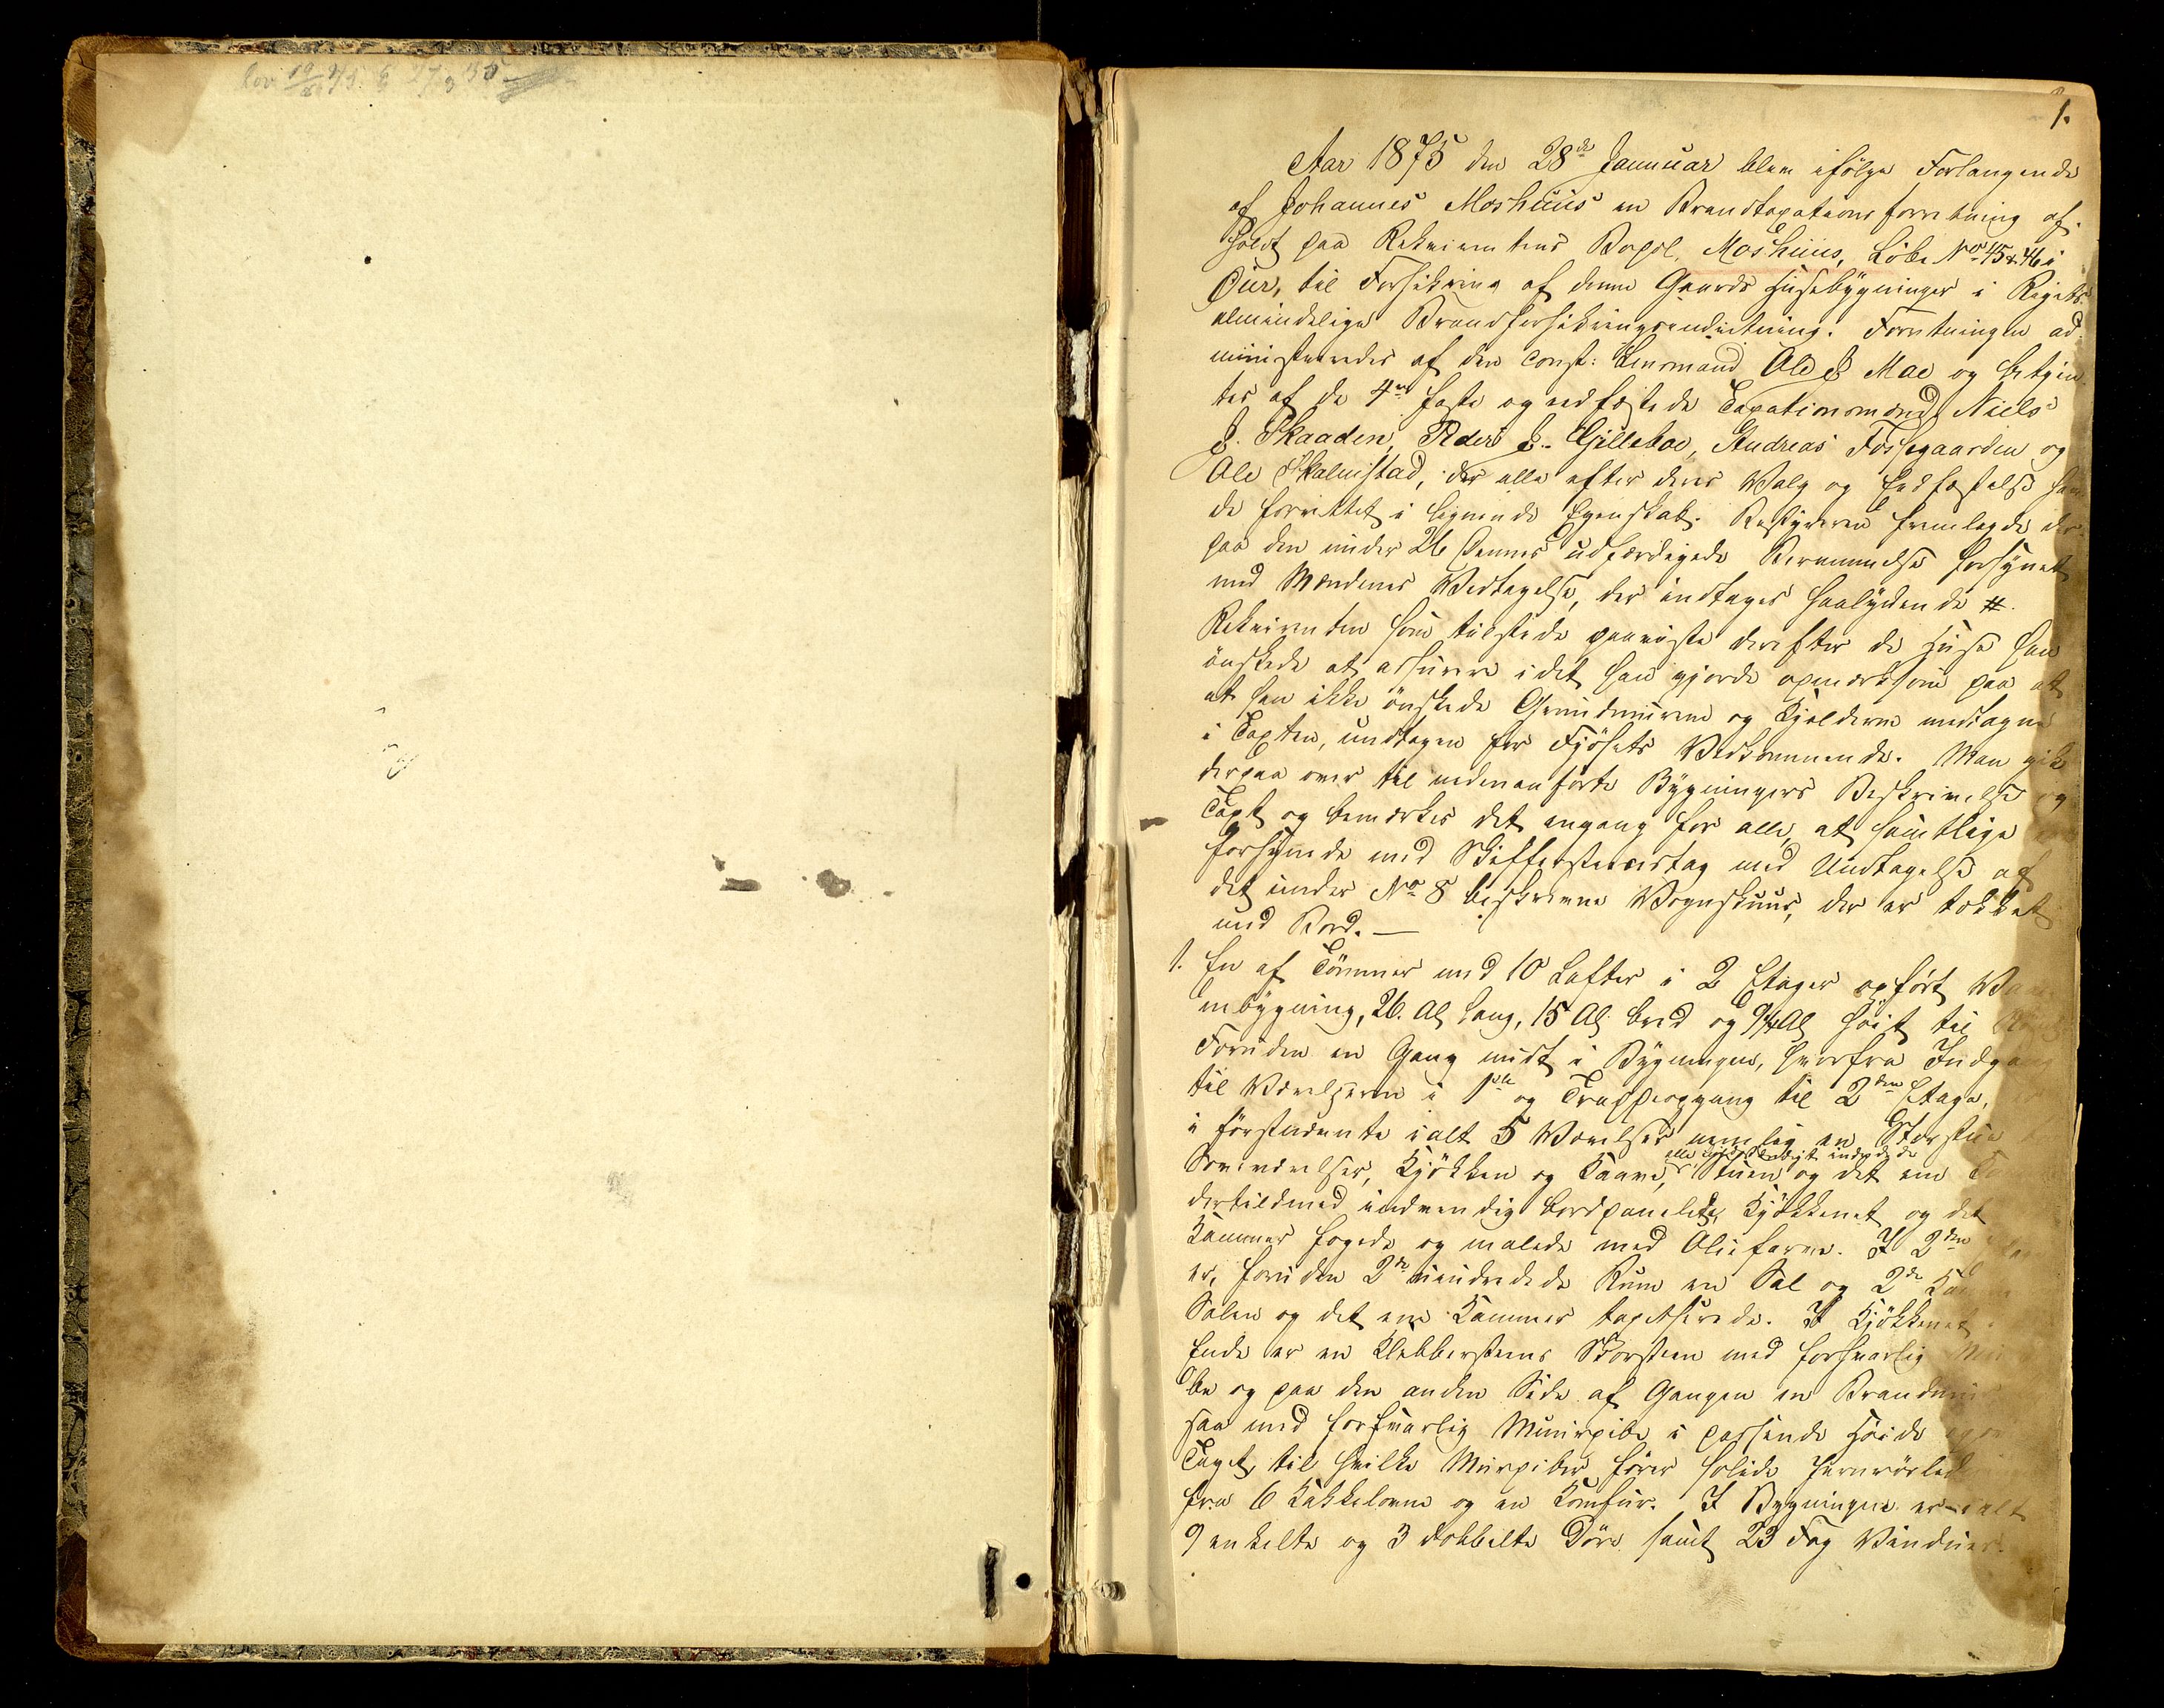 1.
Aar 1875 den 28de Januar blev ifölge Forlangende
af Johannes Moshuus en Brandtaxationsforretning af-
holdt paa Rekvirentens Bopæl, Moshuus, Löbe No 45 & 46 i
Öier, til Forsikring af denne Gaards Husebygninger i Rigets
almindelige Brandforsikringsindretning. Forretningen ad-
ministreredes af den const: Lensmand Ole J Moe og betjen-
tes af de 4re faste og edfæstede Taxationsmænd Niels
J. Skaaden, Peder J. Gilleboe, Andreas Fossegaarden og
Ole Skalmstad, der alle efter deres Valg og Edfæstelse har
de forrettet i lignende Egenskab. Bestyreren fremlagde der-
paa den under 26 dennes udfærdigede Berammelse forsynet
med Mændenes Vedtagelse, der indtages saalydende #.
Rekvirenten som tilstede paaviste derefter de Huse han
önskede at assurere idet han gjorde opmærksom paa at
at han ikke önskede Grundmurene og Kjelderne medtagne
i Taxten, undtagen for Fjösets Vedkommende. Man gik
derpaa over til nedenanförte Bygningers Beskrivelse og
Taxt og bemærkes det engang for alle, at samtlige
forsynede med Skiffersteenstag med Undtagelse af
det under No 8 beskrevne Vognskuur, der er tækket
med Bord. —
1. En af Tömmer med 10 Lafter i 2 Etager opfört
bygning, 26. Al lang, 15 Al bred og 9¼ Al höit til
Foruden en Gang midt i Bygningen, hvorfra Indgang
til Værelserne i 1ste og Trappeopgang til 2den Etage,
i förstnævnte ialt 5 Værelser nemlig en Storstue
Soveværelser, Kjökken og Kaave, Stuen og det ene
dertilmed indvendig bordpanelede, Kjökkenet og det
Kammer fogede og malede med Oliefarve. I 2den
er, foruden 2de uindredede Rum en Sal og 2de
Salen og det ene Kammer tapetserede. I Kjökkenet
Ende er en Klebbersteens Skorsteen med forsvarlig
be og paa den anden Side af Gangen en
saa med forsvarlig Muurpibe i passende Höide
Taget, til hvilke Murpiber förer solide
fra 6 Kakkelovne og en Komfur. I Bygningen er ialt
9 enkelte og 3 dobbelte Döre samt 23 Fag Vinduer.